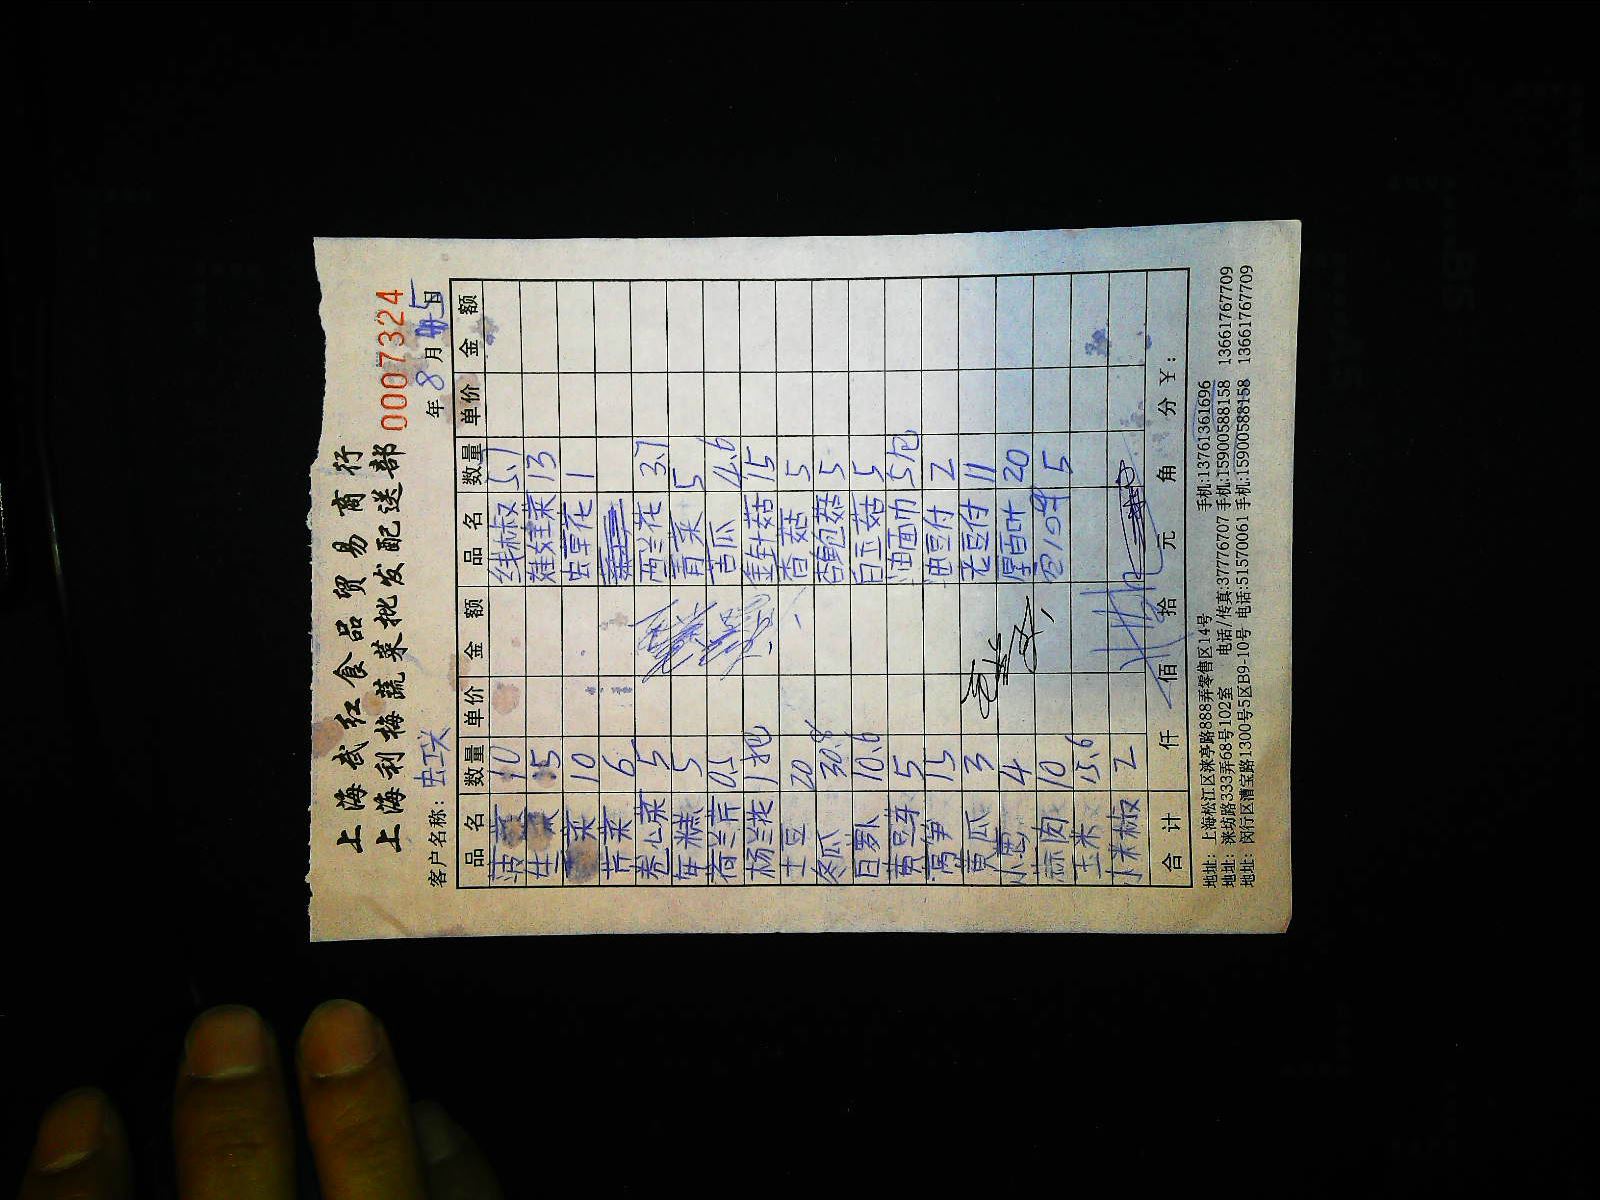 上海武红食品贸易商行
上海利梅蔬菜批发配送部
0007324
客户名称: 年 8 月 5 日
品名 数量 单价 金额 品名 数量 单价 金额
菠菜 10 线椒 5.7
生菜 15 娃娃菜 13
菜 10 虫草花 1
芹菜 6
卷心菜 5 西兰花 3.7
年糕 5 青菜 5
荷兰芹 0.5 苦瓜 4.6
杨兰花 1把 金针菇 15
土豆 20 香菇 5
冬瓜 30.8 杏鲍菇 5
白萝卜 10.6 白玉菇 5
黄豆芽 5 油面巾 5包
莴笋 15 油豆付 2
黄瓜 3 老豆付 11
小葱 4 厚百叶 20
蒜肉 10 5
玉米 15.6
小米椒 2
合计 仟 佰 拾 元 角 分 ¥:
地址: 上海松江区涞亭路888弄零售区14号 手机:13761361696
地址: 涞坊路333弄68号102室 电话/传真:37776707 手机:15900588158 13661767709
地址: 闵行区漕宝路1300号5区B9-10号 电话:51570061 手机:15900588158 13661767709